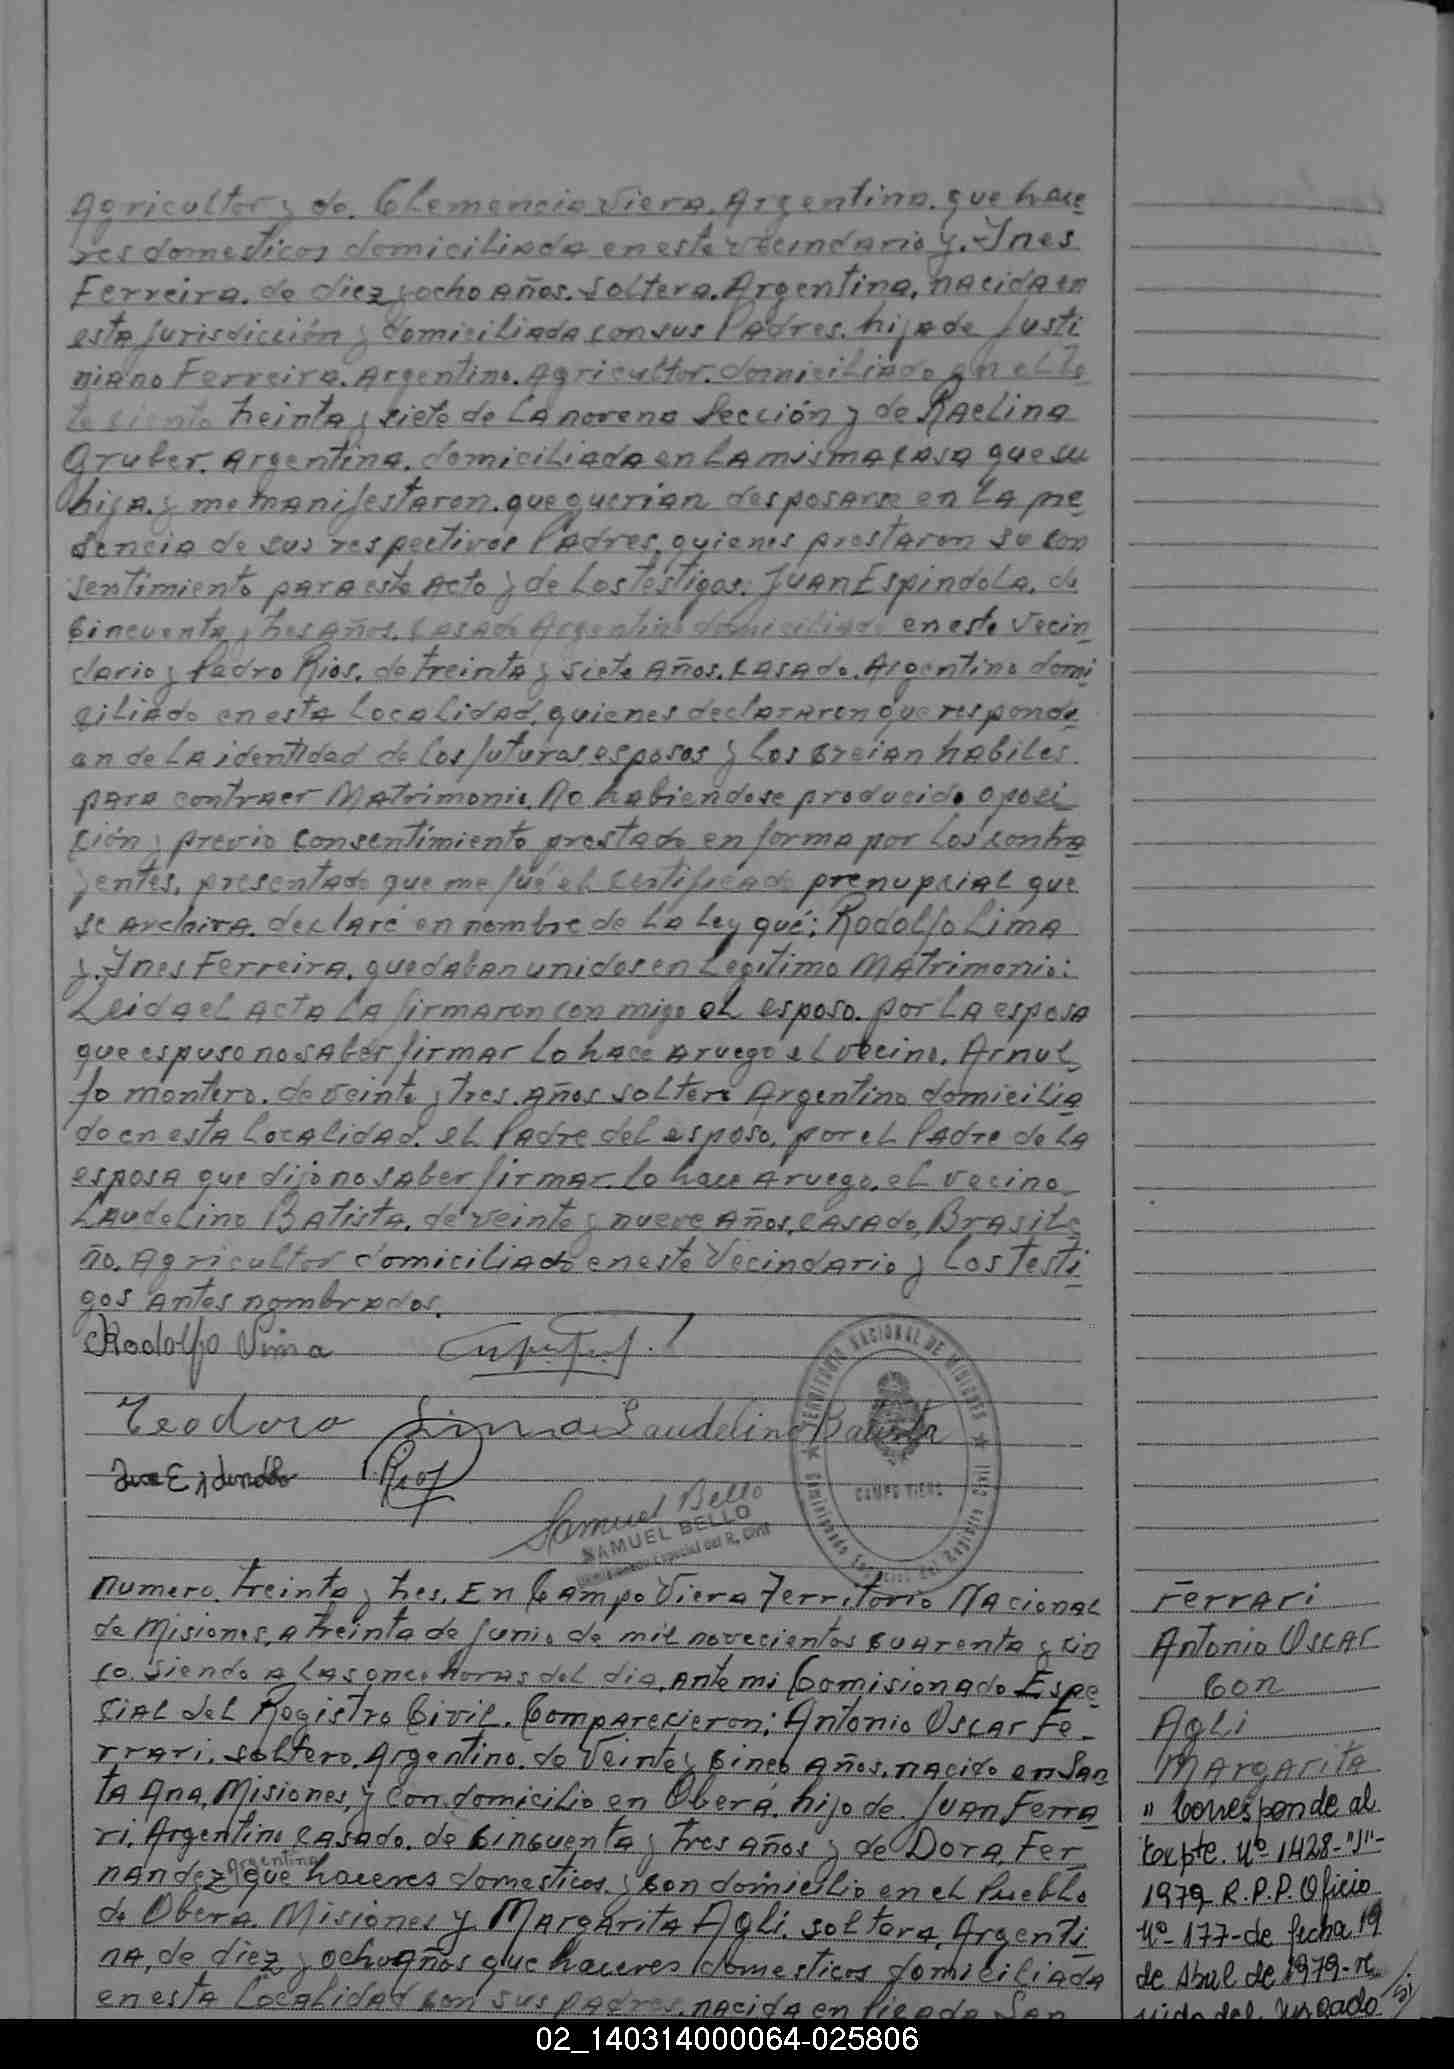 Agricultor y de Clemencia Viera, Argentina, que hace
res domesticos domiciliada en este vecindario y. Ynes
Ferreira. de diez y ocho años. soltera. Argentina, nacida en
esta jurisdicción y domiciliada con sus Padres. hija de Justi
niano Ferreira. Argentino. Agricultor. domiciliado en el lo
te ciento treinta y siete de la novena Sección y de Raelina
Gruber. Argentina. domiciliada en la misma casa que su
hija. y me manifestaron. que querian desposarse en la pre
sencia de sus respectivos Padres, quienes prestaron su con
sentimiento para este Acto y de los testigos: Juan Espindola, de
cincuenta y tres años. casado Argentino domiciliado en este vecin
dario y Pedro Rios. de treinta y siete años. casado. Argentino domi
ciliado en esta localidad, quienes declararon que responde
an de la identidad de los futuros esposos y los creian habiles
para contraer Matrimonio. No habiendose producido oposi
ción y previo consentimiento prestado en forma por los contra
yentes, presentado que me fué el certificado prenupcial que
se archiva. declaré en nombre de la ley qué; Rodolfo Lima
y. Ynes Ferreira. quedaban unidos en Legitimo Matrimonio:
Leida el acta la firmaron con migo el esposo. por la esposa
que espuso no saber firmar lo hace a ruego el vecino. Arnul
fo montero. de veinte y tres años soltero Argentino domicilia
do en esta localidad. el Padre del esposo. por el Padre de la
esposa que dijo no saber firmar. lo hace a ruego. el vecino
Laudelino Batista. de veinte y nueve años, casado, Brasile
ño. Agricultor domiciliado en este Vecindario y los testi
gos antes nombrados.
Rodolfo Lima
Teodoro Lima Laudelino Batista
Rios
Samuel Bello
SAMUEL BELLO
Comisionado Especial del R. Civil
TERRITORIO NACIONAL DE MISIONES
CAMPO VIERA
Comisionado Especial del Registro Civil
numero. treinta y tres. En Campo Viera Territorio Nacional
de Misiones, a treinta de junio de mil novecientos cuarenta y cin
co. siendo a las once horas del dia, ante mi Comisionado Espe
cial del Registro Civil. Comparecieron; Antonio Oscar Fe
rrari. soltero. Argentino. de veinte y cinco años. nacido en San
ta Ana, Misiones, y con domicilio en Oberá. hijo de Juan Ferra
ri. Argentino casado. de cincuenta y tres años y de Dora, Fer
nandez Argentina que haceres domesticos. y con domicilio en el Pueblo
de Oberá. Misiones y Margarita Agli. soltera, Argenti
na, de diez y ocho años que haceres domesticos domiciliada
en esta localidad con sus padres. nacida en Picada San
Ferrari
Antonio Oscar
Con
Agli
Margarita
" Corresponde al
Expte. Nº 1428-"J"-
1979 R.P.P. Oficio
Nº 177-de fecha 19
de Abril de 1979-re
nido del Juzgado
02_140314000064-025806